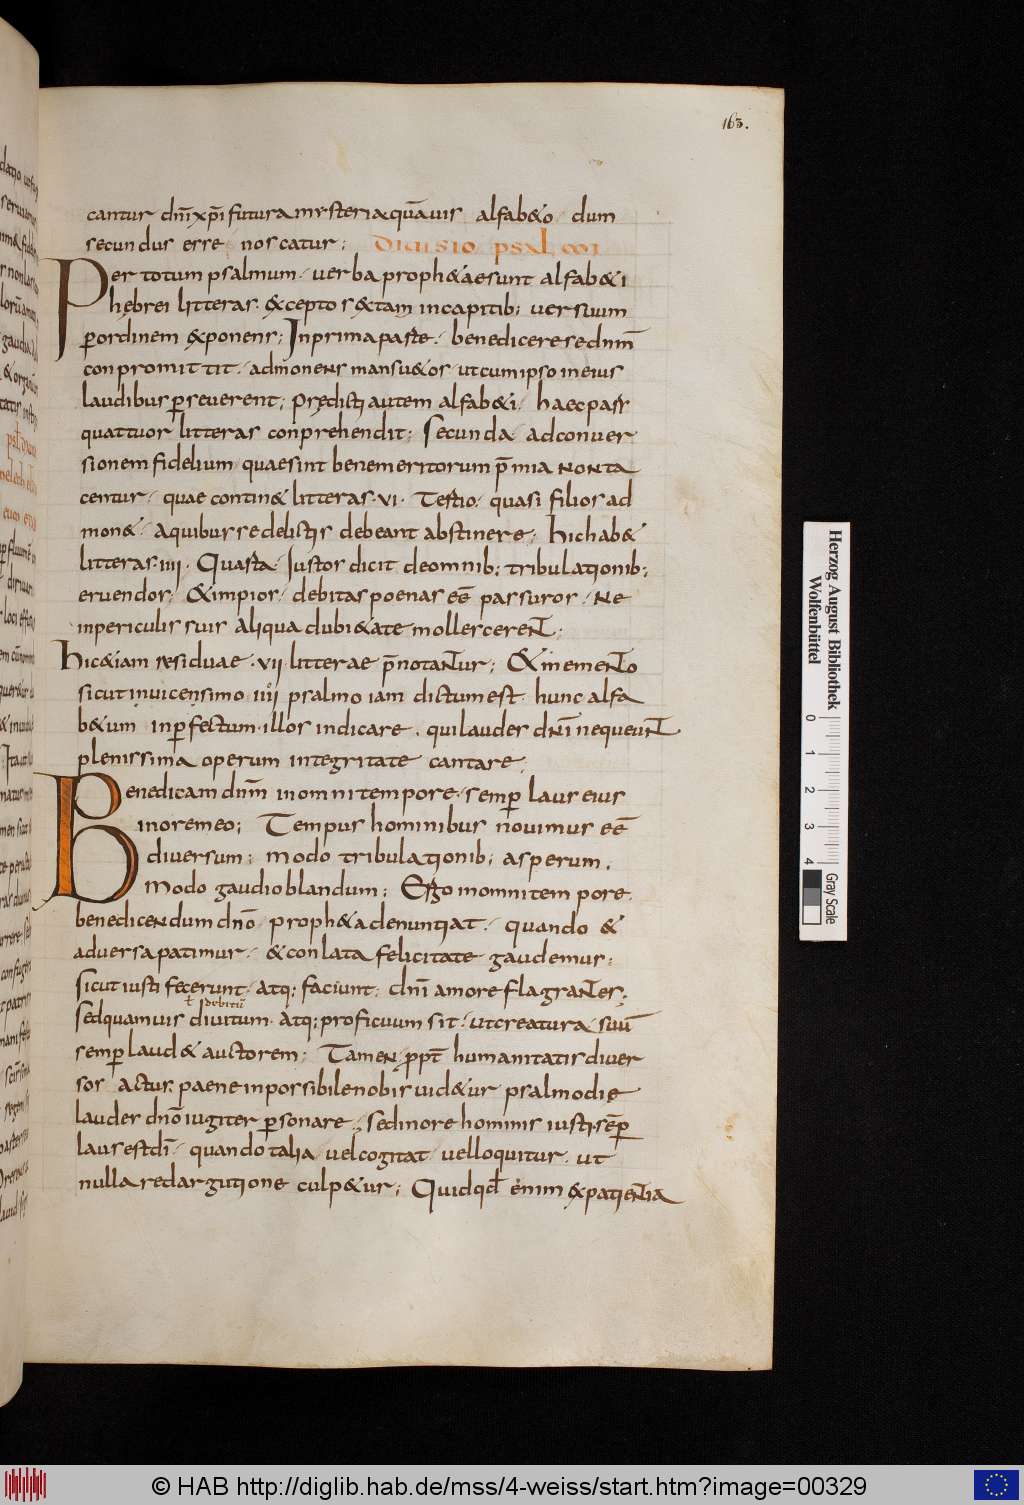 163.
cantur dn̄i xp̄i futura mysteria quāuis alfab&o dum
secundus esse noscatur; DIUISIO PSALMI
Per totum psalmum uerba proph&ae sunt alfab&i
hebrei litteras &cepto s&tam in capitib; uersuum
p̱ordinem &ponens; In prima parte benedicere se dn̄m
conpromittit. admonens mansu&os ut cum ipso in eius
laudibus p̱seuerent; Prędicti autem alfab&i haec pars
quattuor litteras conprehendit; Secunda ad conuer
sionem fidelium quae sint benemeritorum p̄mia non ta
centur. quae contin& litteras .vi. Tertio quasi filios ad
mon&. a quibus se delictis debeant abstinere; Hic hab&
litteras .iiii. Quarta. Iustos dicit de omnib; tribulationib;
eruendos; &impios. debitas poenas eē passuros. Ne
in periculis suis aliqua dubi&ate mollescerent;
Hic &iam residuae .vii. litterae p̄notantur; & in emento
sicut in uicensimo iiii psalmo iam dictum est hunc alfa
b&um inp̱fectum illos indicare. qui laudes dn̄i nequeunt
plenissima operum integritate cantare.
Benedicam dn̄m in omni tempore. semp̱ laus eius
in ore meo; Tempus hominibus nouimus eē
diuersum; modo tribulationib; asperum.
Modo gaudio blandum; Ergo in omni tempore.
benedicendum dn̄o proph&a denuntiat. quando &
aduersa patimur. & conlata felicitate gaudemus;
sicut iusti fecerunt. atq; faciunt; dn̄i amore flagrantes;
ł debitū
Sed quamuis diuitum. atq; proficuum sit. ut creatura suū
semp̱ laud& auctorem; Tamen pp̄t humanitatis diuer
sos actus. paene inpossibile nobis uid&ur psalmodie
laudes dn̄o iugiter p̱sonare. sed in ore hominis iusti sēp̱
laus est dī. quando talia uel cogitat. uel loquitur. ut
nulla redargutione culp&ur; Quidqd̄ enim &patientia
Herzog August Bibliothek
Wolfenbüttel
0 1 2 3 4
Gray Scale
© HAB http://diglib.hab.de/mss/4-weiss/start.htm?image=00329